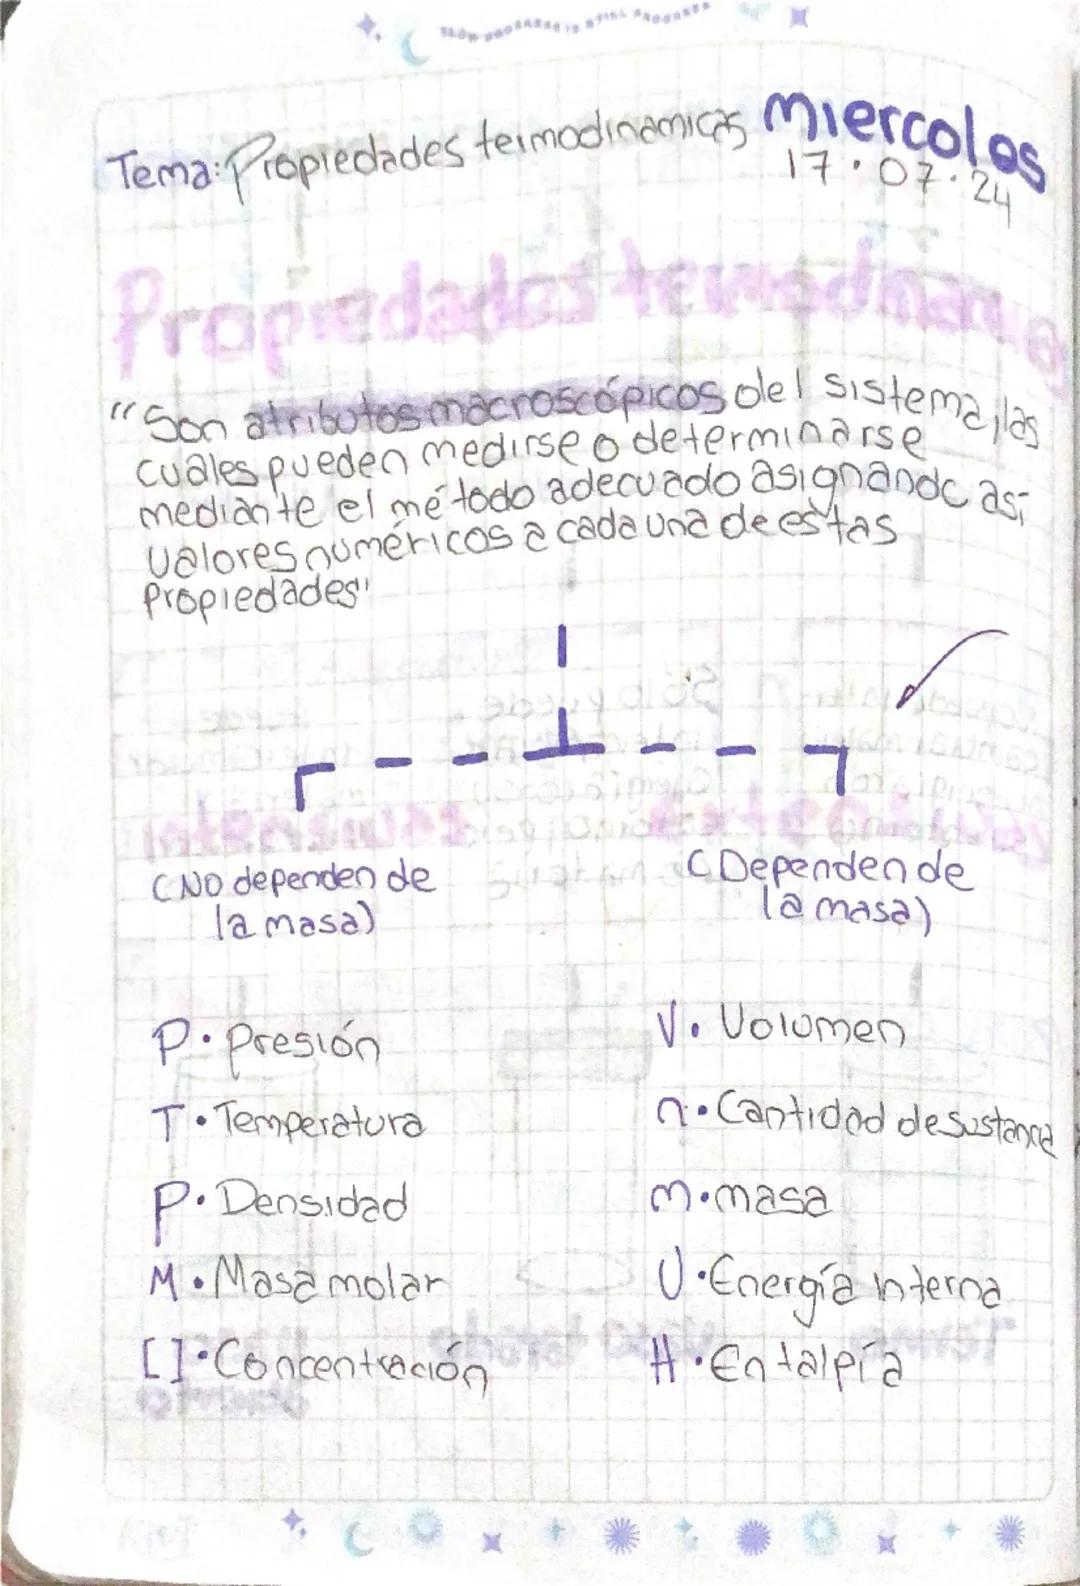 SLOW PROGRESS IS STILL PROGRESS
Tema: Propiedades termodinamicas Miercoles
17.07.24
Propiedades termodinamicas
"Son atributos macroscópicos del sistema, las
cuales pueden medirse o determinarse
mediante el método adecuado asignando así
valores numéricos a cada una de estas
propiedades"
(No dependen de
la masa)
(Dependen de
la masa)
P • Presión
T • Temperatura
ρ • Densidad
M • Masa molar
[] • Concentración
V • Volumen
n • Cantidad de sustancia
m • masa
U • Energía interna
H • Entalpía